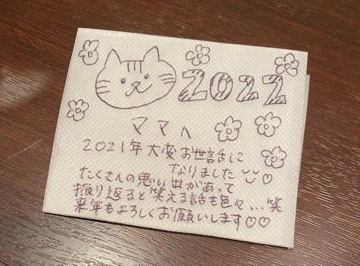 2022
ママへ
2021年大変お世話に
なりました
たくさんの思い出があって
振り返ると笑える話も色々...笑
来年もよろしくお願いします♡♡